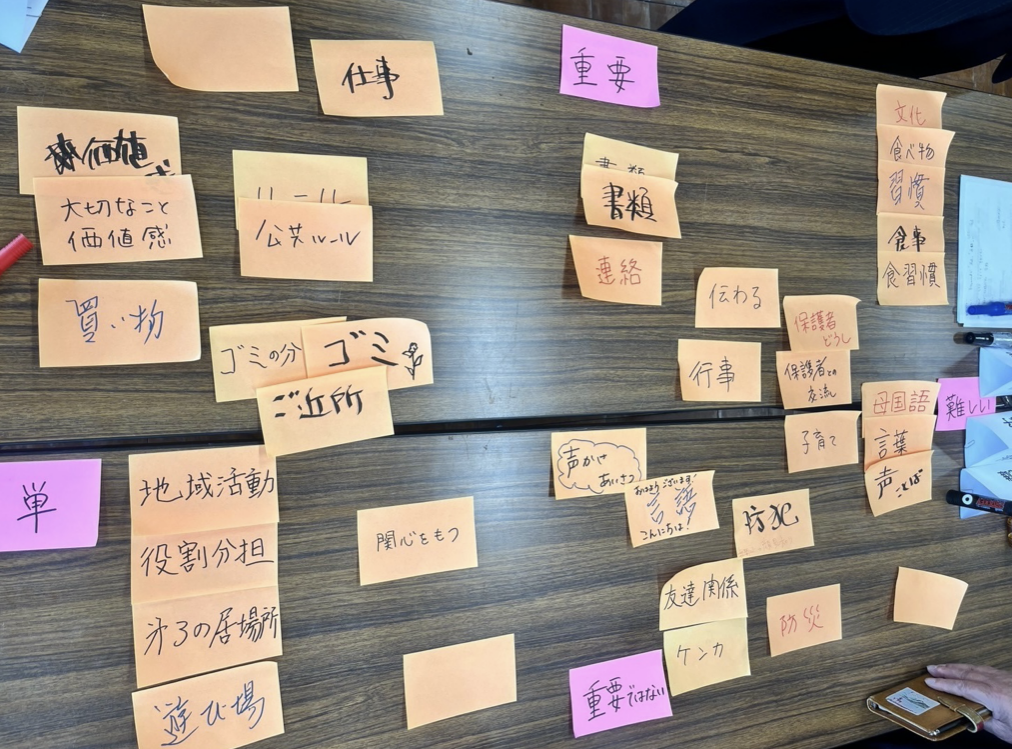 仕事
重要
価値
大切なこと
価値感
公共ルール
買い物
ゴミの分
ゴミ
ご近所
書類
書類
連絡
伝わる
行事
保護者
どうし
保護者との
交流
子育て
文化
食べ物
習慣
食事
食習慣
母国語
言葉
声 ことば
難しい
単
地域活動
役割分担
第3の居場所
遊び場
関心をもつ
声かけ
あいさつ
おはようございます!
言語
こんにちは!
防犯
友達関係
ケンカ
防災
重要ではない